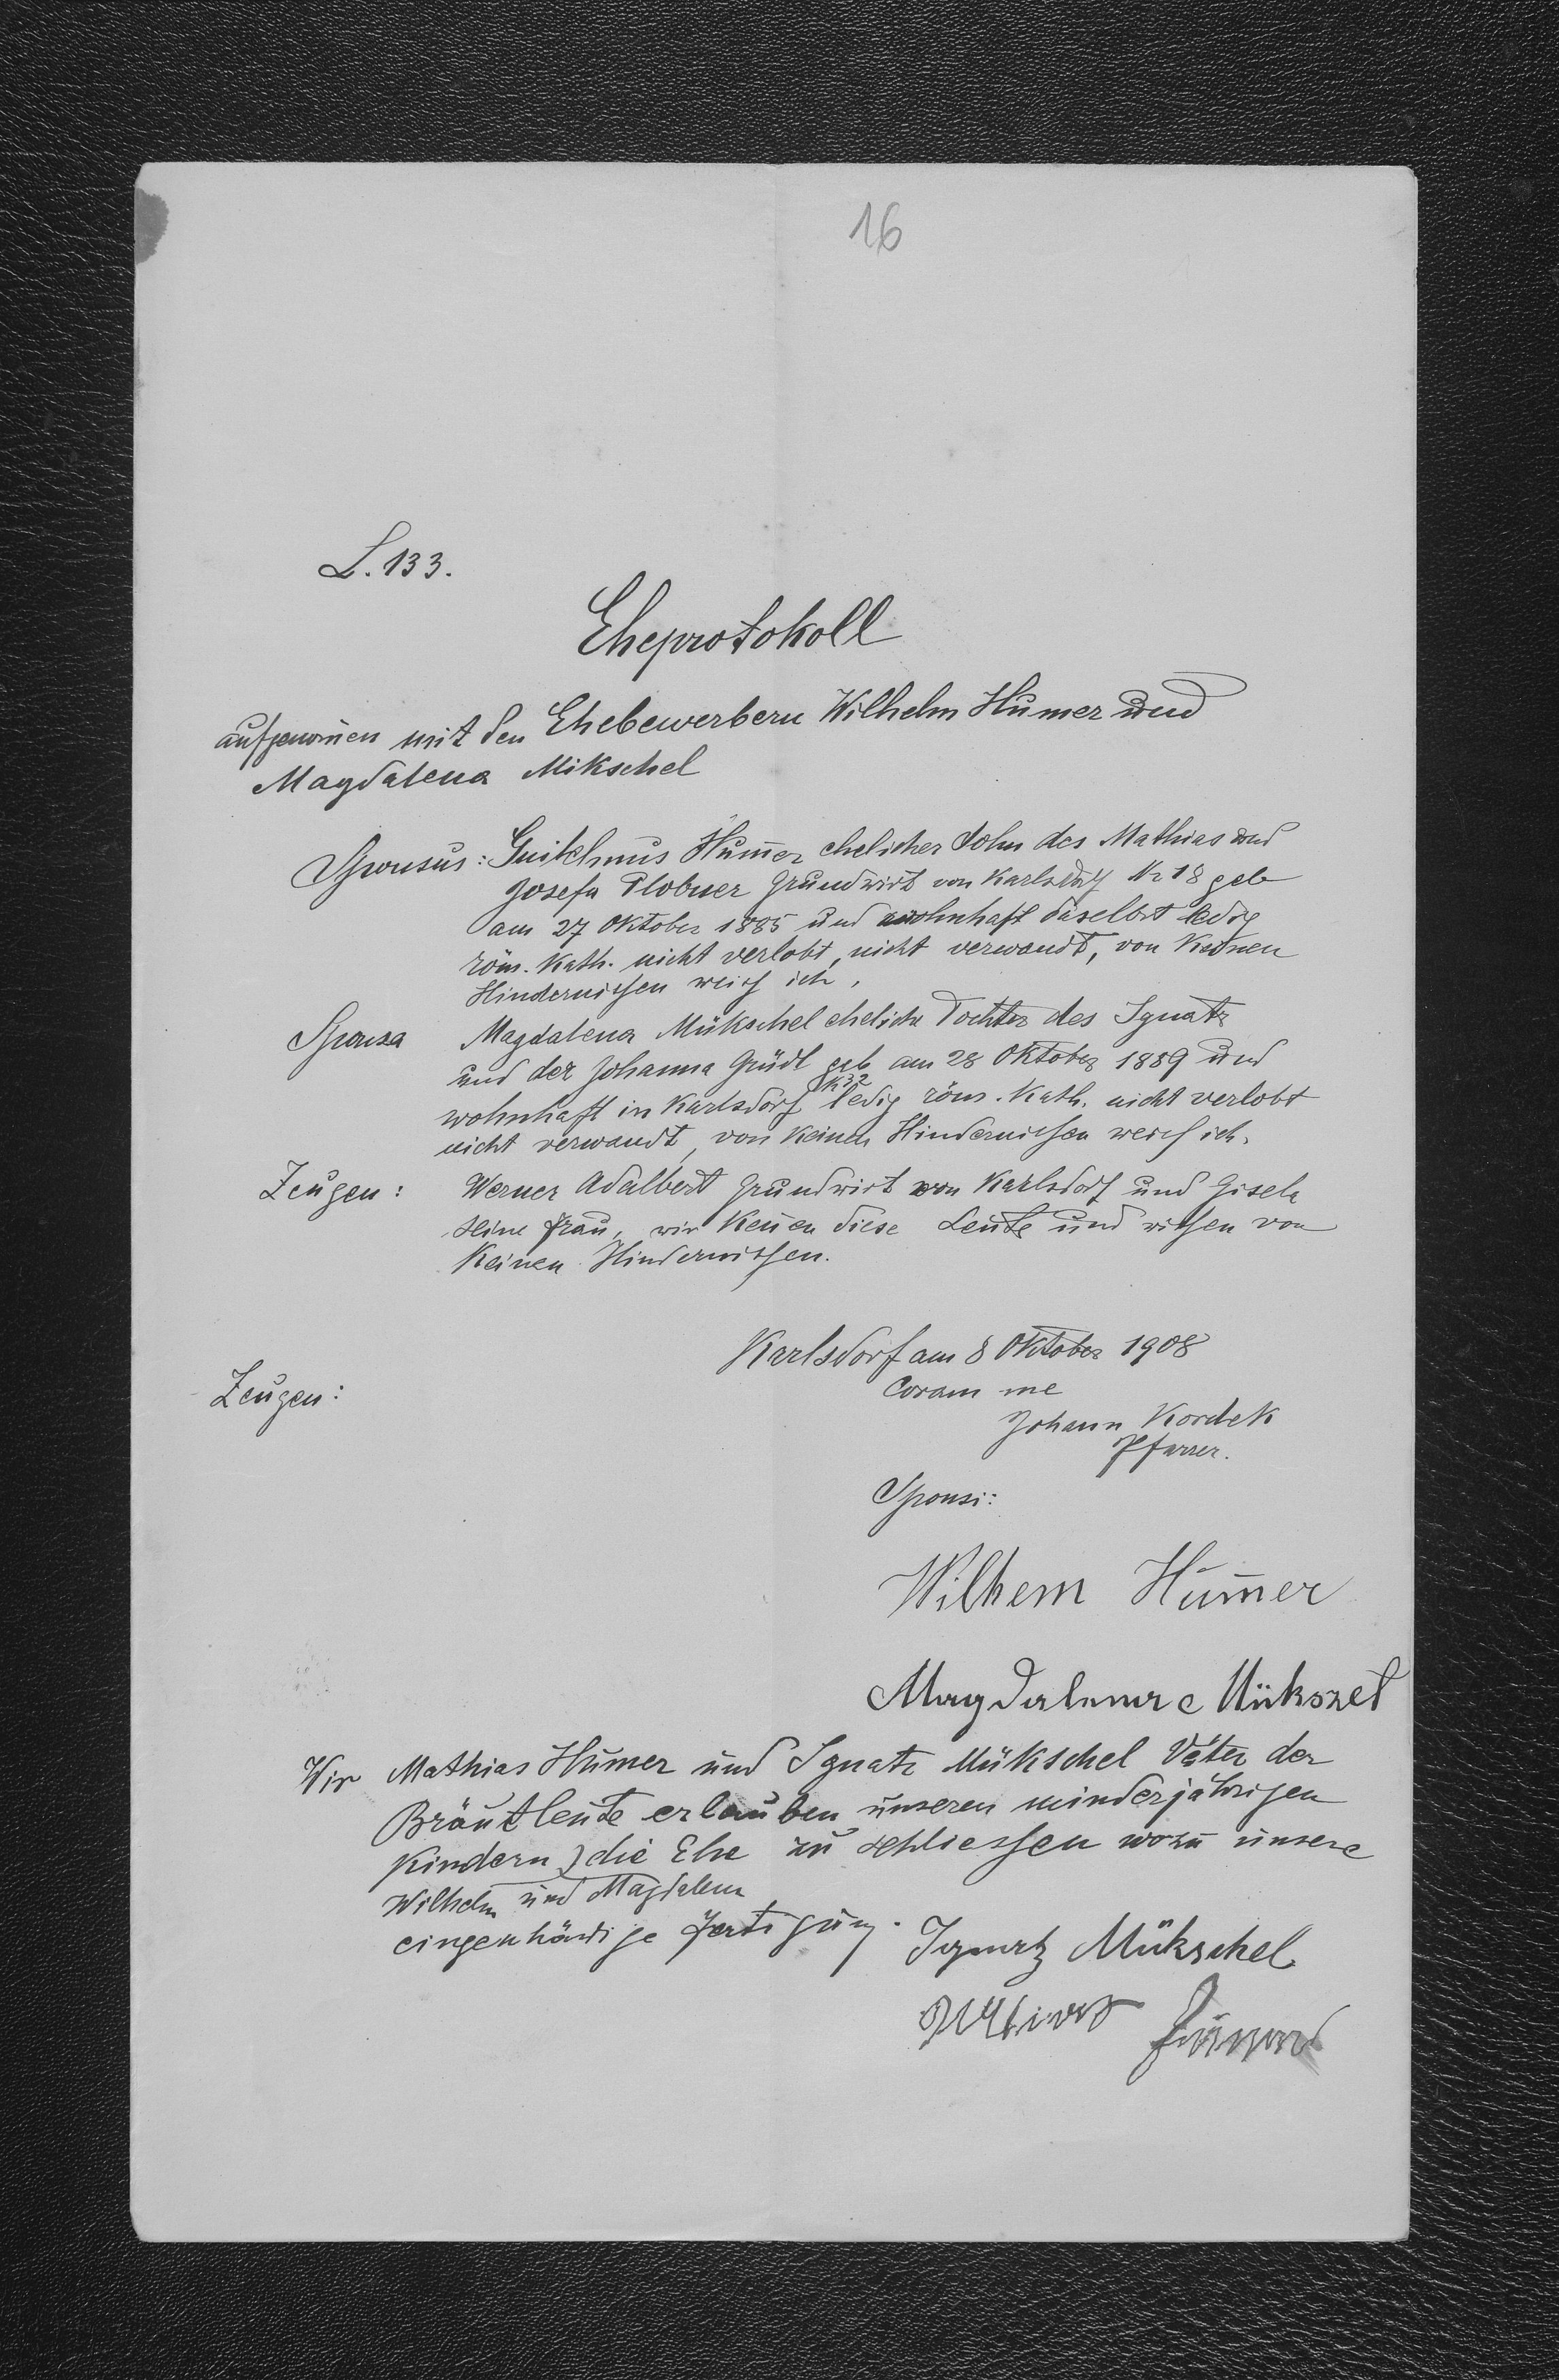 16
L. 133.
Eheprotokoll
aufgenom̄en mit den Ehebewerbern Wilhelm Humer und
Magdalena Mikschel
Sponsus: Guilelmus Hum̄er ehelicher Sohn des Mathias und
Josefa Plobner Grundwirt von Karlsdorf Nr 18 geb
am 27 Oktober 1885 und wohnhaft daselbst ledig
röm. Kath. nicht verlobt, nicht verwandt, von Keinen
Hindernissen weiss ich,
Sponsa Magdalena Mükschel eheliche Tochter des Ignatz
und der Johanna Grüdl geb am 28 Oktober 1889 und
wohnhaft in Karlsdorf K32 ledig röm. Kath. nicht verlobt
nicht verwandt, von Keinen Hindernissen weiss ich.
Zeugen: Werner Adalbert Grundwirt von Karlsdorf und Gisela
seine Frau, wir Ken̄en diese Leute und wissen von
Keinen Hindernissen.
Karlsdorf am 8 Oktober 1908
Zeugen:
Coram me
Johann Kordek
Pfarrer.
Sponsi:
Wilhem Hum̄er
Magdalena Mükszel
Wir Mathias Humer und Ignatz Mükschel Väter der
Brautleute erlauben unseren minderjährigen
Kindern) die Ehe zu schliessen wozu unsere
Wilhelm und Magdalena
eingenhändige Fertigung.
Ignatz Mükschel